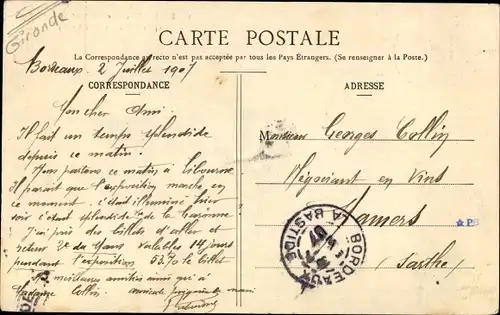 Gironde
CARTE POSTALE
La Correspondance au recto n'est pas acceptée par tous les Pays Étrangers. (Se renseigner à la Poste.)
Bordeaux 2 Juillet 1907
CORRESPONDANCE
Mon cher Ami.
Il fait un temps splendide
depuis ce matin.
Nous partons ce matin à Libourne
Il parait que l'exposition marche en
ce moment. c'était illuminé hier
soir c'était splendide de la Garonne
J'ai pris des billets d'aller et
retour du Mans valables 14 jours
pendant l'exposition 53.70 le billet
meilleures amitiés ainsi qu'à
Madame Collin.
ADRESSE
Monsieur Georges Collin
Négociant en Vins
Mamers
Sarthe
BORDEAUX
LA BASTIDE
07
PB